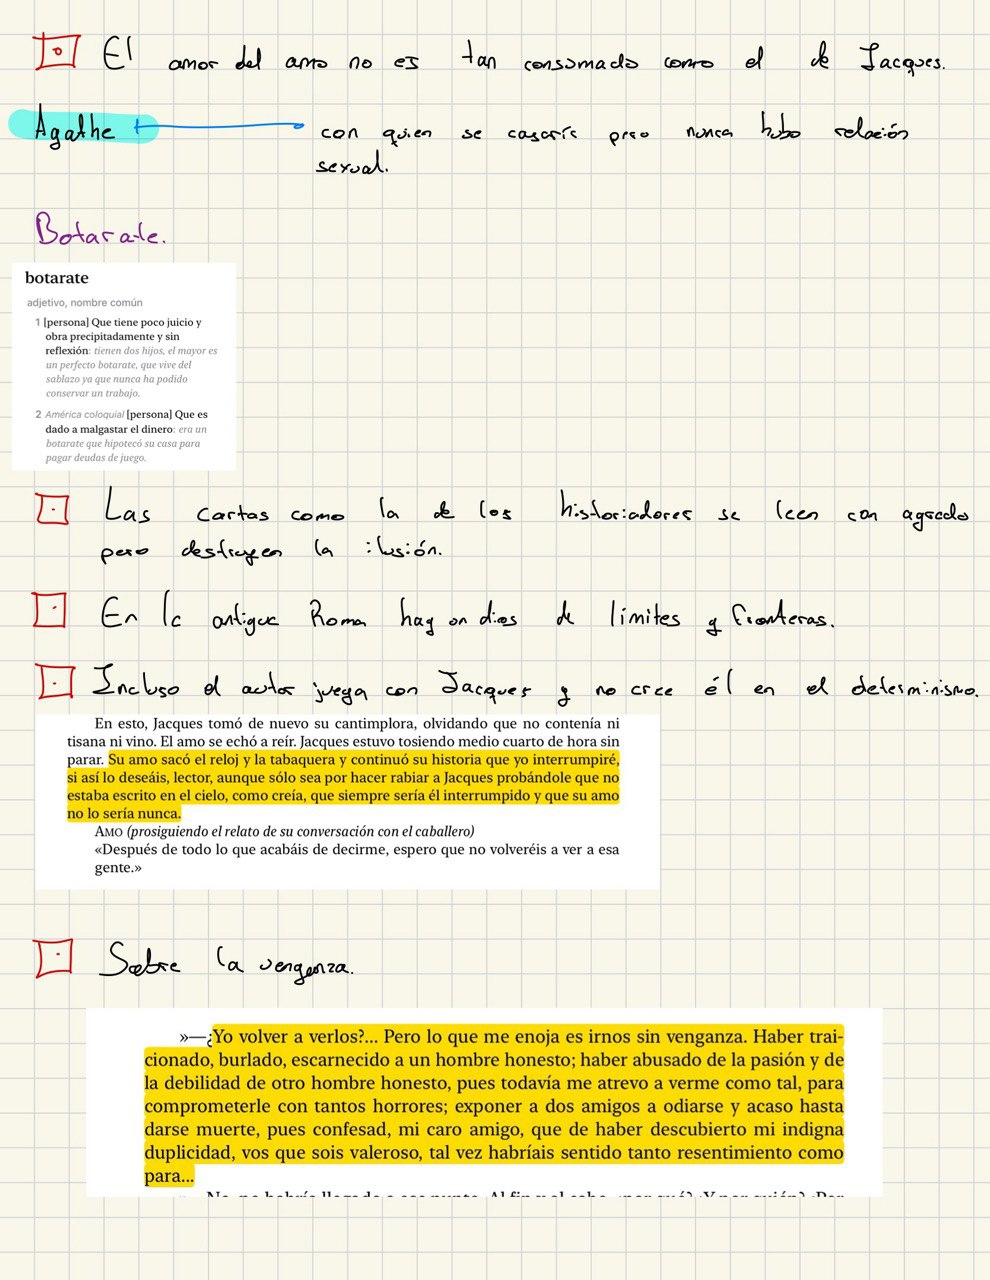 El amor del amo no es tan consumado como el de Jacques.
Agathe con quien se casaría pero nunca hubo relación
sexual.
Botarate.
botarate
adjetivo, nombre común
1 [persona] Que tiene poco juicio y
obra precipitadamente y sin
reflexión: tienen dos hijos, el mayor es
un perfecto botarate, que vive del
sablazo ya que nunca ha podido
conservar un trabajo.
2 América coloquial [persona] Que es
dado a malgastar el dinero: era un
botarate que hipotecó su casa para
pagar deudas de juego.
Las cartas como la de los historiadores se leen con agrado
pero destruyen la ilusión.
En la antigua Roma hay un dios de límites y fronteras.
Incluso el autor juega con Jacques y no cree él en el determinismo.
En esto, Jacques tomó de nuevo su cantimplora, olvidando que no contenía ni
tisana ni vino. El amo se echó a reír. Jacques estuvo tosiendo medio cuarto de hora sin
parar. Su amo sacó el reloj y la tabaquera y continuó su historia que yo interrumpiré,
si así lo deseáis, lector, aunque sólo sea por hacer rabiar a Jacques probándole que no
estaba escrito en el cielo, como creía, que siempre sería él interrumpido y que su amo
no lo sería nunca.
AMO (prosiguiendo el relato de su conversación con el caballero)
«Después de todo lo que acabáis de decirme, espero que no volveréis a ver a esa
gente.»
Sobre la venganza.
»—¿Yo volver a verlos?... Pero lo que me enoja es irnos sin venganza. Haber trai-
cionado, burlado, escarnecido a un hombre honesto; haber abusado de la pasión y de
la debilidad de otro hombre honesto, pues todavía me atrevo a verme como tal, para
comprometerle con tantos horrores; exponer a dos amigos a odiarse y acaso hasta
darse muerte, pues confesad, mi caro amigo, que de haber descubierto mi indigna
duplicidad, vos que sois valeroso, tal vez habríais sentido tanto resentimiento como
para...